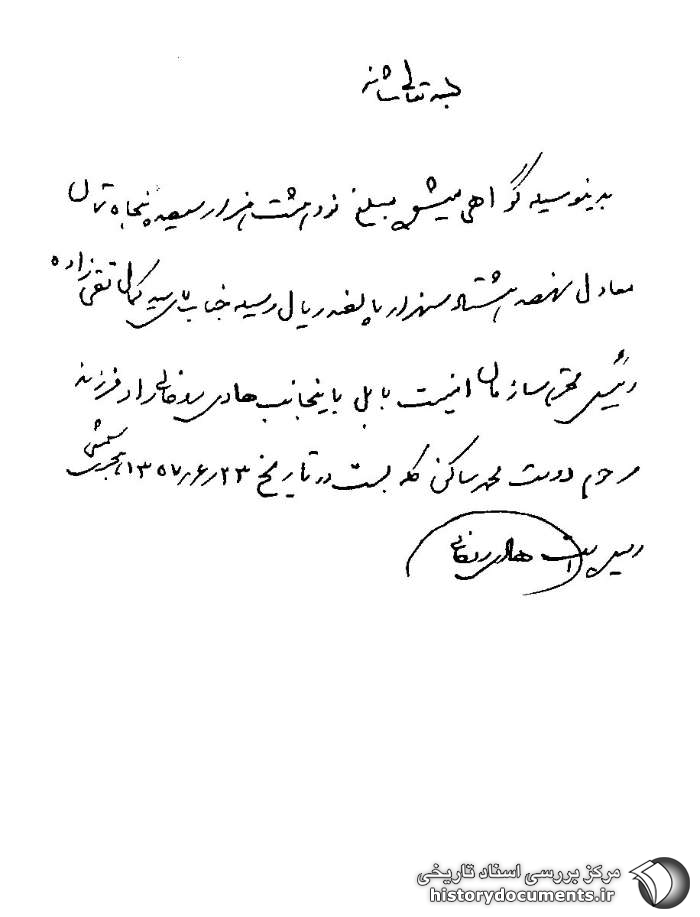 بسمه تعالی شانه
بدینوسیله گواهی میشود مبلغ نود هشت هزار سیصد پنجاه تومان
معادل نهصد هشتاد سه هزار پانصد ریال وسیله جناب آقای سید کمال تقی زاده
رئیس محترم سازمان امنیت بابل باینجانب هادی روحانی راد فرزند
مرحوم دوست محمد ساکن کله بست در تاریخ ۱۳۵۷٫۶٫۲۳ هجری شمسی
رسیده است هادی روحانی
مرکز بررسی اسناد تاریخی
historydocuments.ir